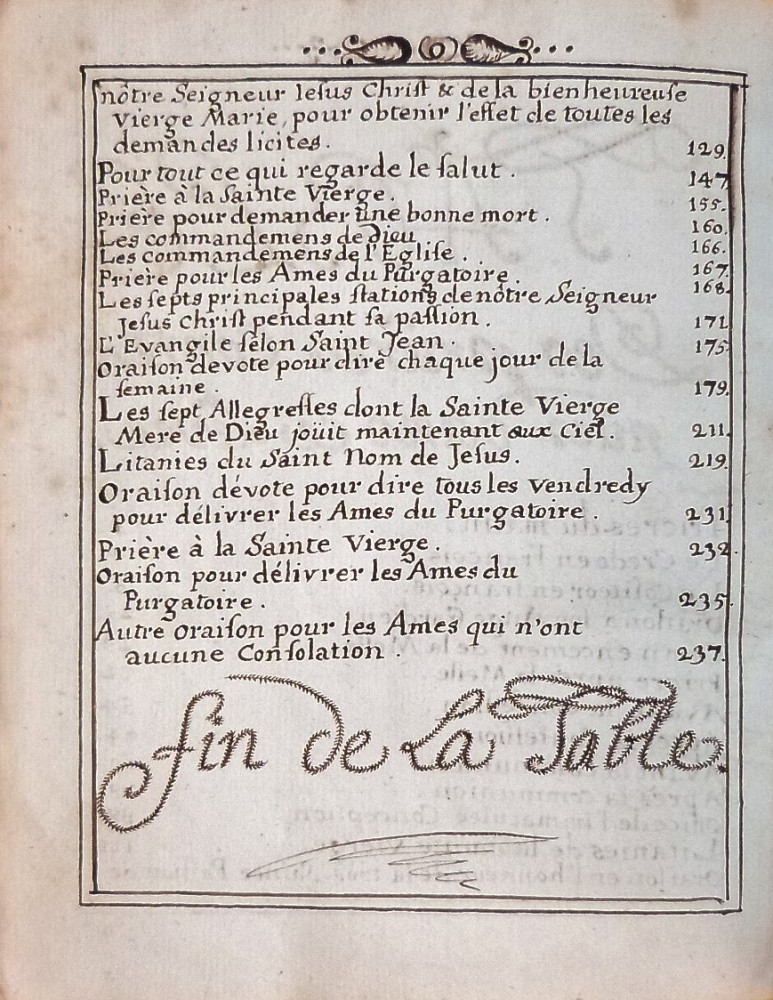 nôtre Seigneur Iesus Christ & de la bienheureuse
Vierge Marie, pour obtenir l'effet de toutes les
demandes licites. 129.
Pour tout ce qui regarde le salut. 147
Prière à la Sainte Vierge. 155.
Prière pour demander une bonne mort. 160.
Les commandemens de Dieu 166.
Les commandemens de l'Eglise. 167.
Prière pour les Ames du Purgatoire. 168.
Les septs principales stations de nôtre Seigneur
Jesus Christ pendant sa passion. 171
L'Evangile selon Saint Jean. 175.
Oraison devote pour dire chaque jour de la
semaine. 179.
Les sept Allegresses dont la Sainte Vierge
Mere de Dieu joüit maintenant aux Ciel. 211.
Litanies du Saint Nom de Jesus. 219.
Oraison dévote pour dire tous les vendredy
pour délivrer les Ames du Purgatoire. 231
Prière à la Sainte Vierge. 232.
Oraison pour délivrer les Ames du
Purgatoire. 235.
Autre oraison pour les Ames qui n'ont
aucune Consolation. 237.
fin de La Table.